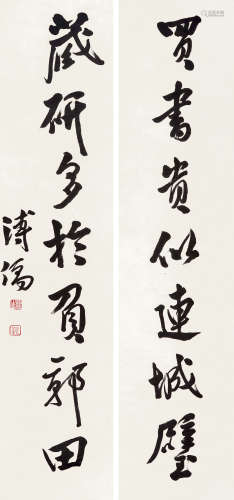 買書貴似連城璧
蔵研多於負郭田
溥儒